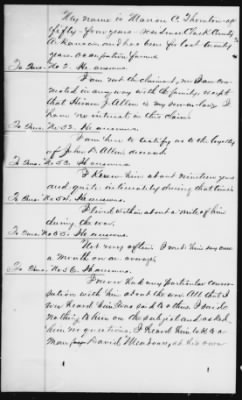 My name is Marion C. Thornton age
fifty-four years. reside Clark County
Arkansas and has been for last twenty
years. occupation farmer
To Ques. No 2. He answers
I am not the claimant, nor I am con-
nected in any way with the family, except
that Hiram J. Allen is my son-in-law I
have no interest in this claim
To Ques. No. 52. He answers.
I am here to testify as to the loyalty
of John B. Allen deceased
To Ques. No 53. He answers
I knew him about nineteen years
and quite intimately during that time
To Ques. No 54. He answers.
I lived within about a mile of him
during the war.
To Ques. No 55. He answers
Not very often. I met him say once
a month on an average.
To Ques. No 56. He answers.
I never had any particular conver-
sation with him about the war. All that I
ever heard him was said to others. I said
nothing to him on the subject and asked
him no questions. I heard him talk to a
man David Meadows, at his own